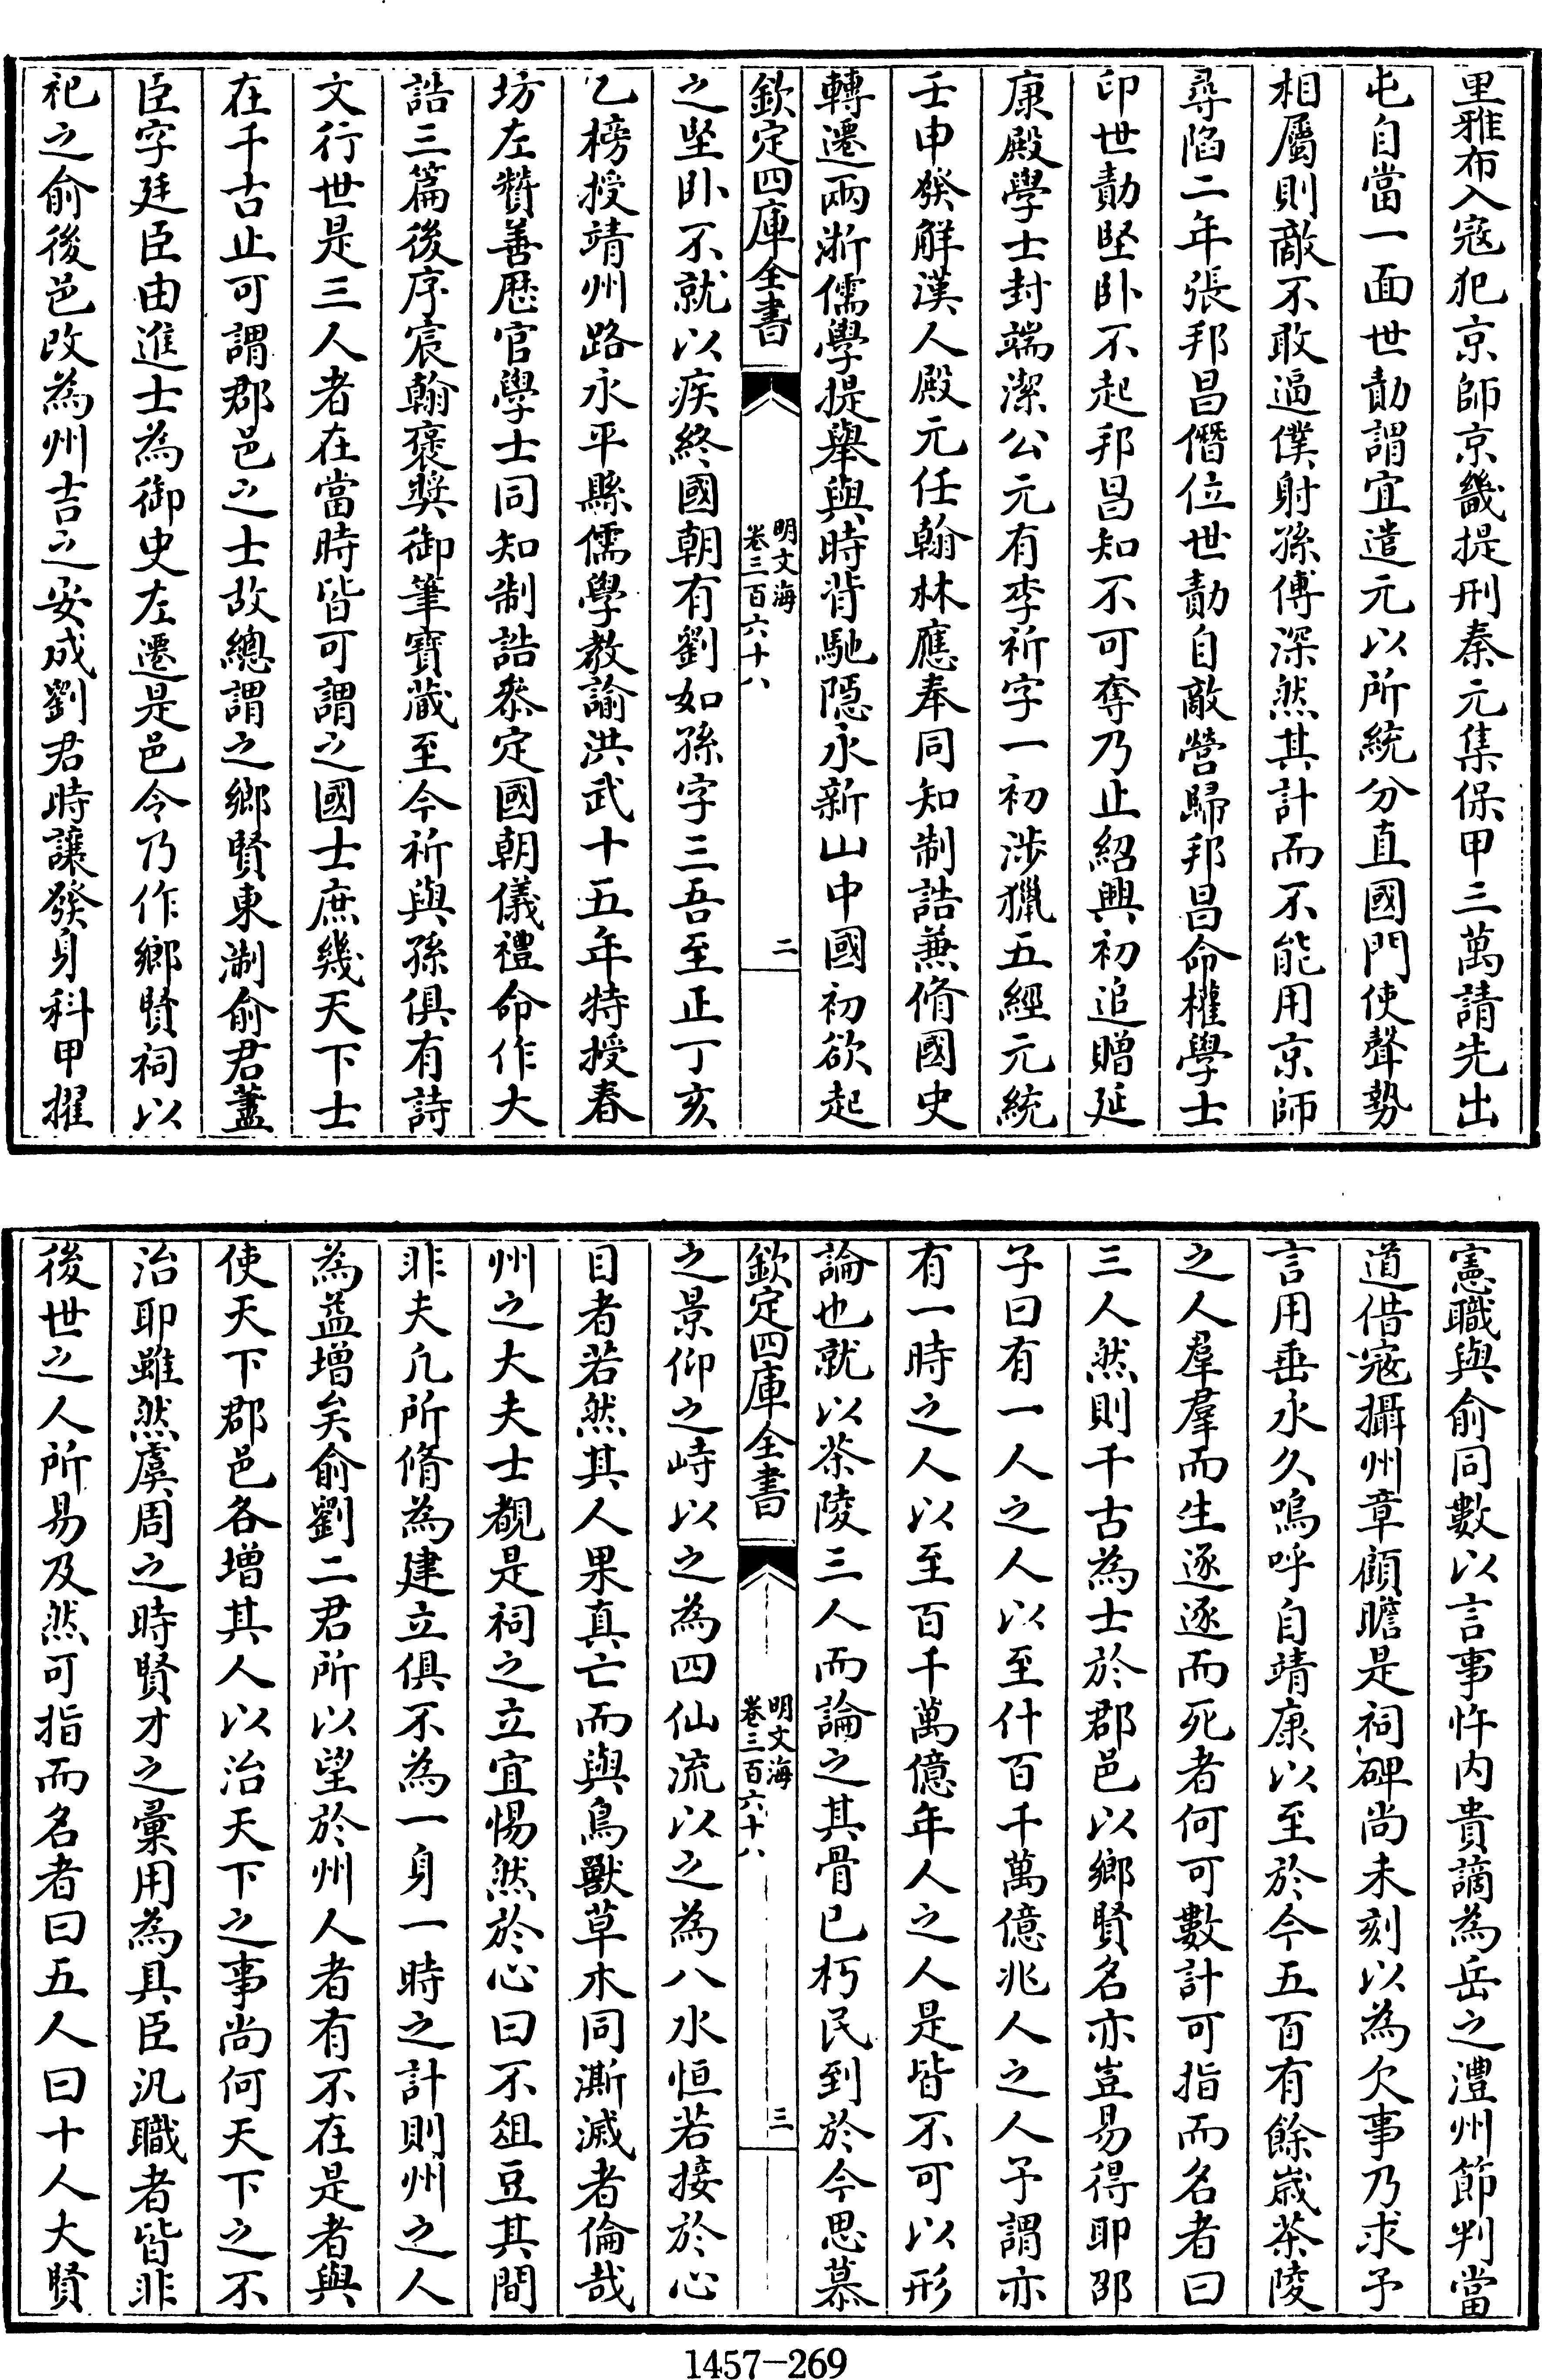 里雅布入寇犯京師京畿提刑秦元集保甲三萬請先出
屯自當一面世勣謂宜遣元以所統分直國門使聲勢
相屬則敵不敢逼僕射孫傅深然其計而不能用京師
尋陷二年張邦昌僭位世勣自敵營歸邦昌命權學士
印世勣堅卧不起邦昌知不可奪乃止紹興初追贈延
康殿學士封端潔公元有李祈字一初涉獵五經元統
壬申發解漢人殿元任翰林應奉同知制誥兼脩國史
轉遷兩浙儒學提舉與時背馳隠永新山中國初欲起
欽定四庫全書
明文海
卷三百六十八
二
之堅卧不就以疾終國朝有劉如孫字三吾至正丁亥
乙榜授靖州路永平縣儒學教諭洪武十五年特授春
坊左贊善歴官學士同知制誥叅定國朝儀禮命作大
誥三篇後序宸翰褒奬御筆寶藏至今祈與孫俱有詩
文行世是三人者在當時皆可謂之國士庶幾天下士
在千古止可謂郡邑之士故總謂之鄉賢東淛俞君藎
臣字廷臣由進士為御史左遷是邑令乃作鄉賢祠以
祀之俞後邑改為州吉之安成劉君時讓發身科甲擢
憲職與俞同數以言事忤内貴謫為岳之澧州節判當
道借寇攝州章顧瞻是祠碑尚未刻以為欠事乃求予
言用垂永久嗚呼自靖康以至於今五百有餘歳茶陵
之人羣羣而生逐逐而死者何可數計可指而名者曰
三人然則千古為士於郡邑以鄉賢名亦豈易得耶邵
子曰有一人之人以至什百千萬億兆人之人予謂亦
有一時之人以至百千萬億年人之人是皆不可以形
論也就以茶陵三人而論之其骨已朽民到於今思慕
欽定四庫全書
明文海
卷三百六十八
三
之景仰之峙以之為四仙流以之為八水恒若接於心
目者若然其人果真亡而與鳥獸草木同澌滅者倫哉
州之大夫士覩是祠之立宜惕然於心曰不俎豆其間
非夫凢所脩為建立俱不為一身一時之計則州之人
為益增矣俞劉二君所以望於州人者有不在是者與
使天下郡邑各增其人以治天下之事尚何天下之不
治耶雖然虞周之時賢才之彚用為具臣汎職者皆非
後世之人所易及然可指而名者曰五人曰十人大賢
1457-269